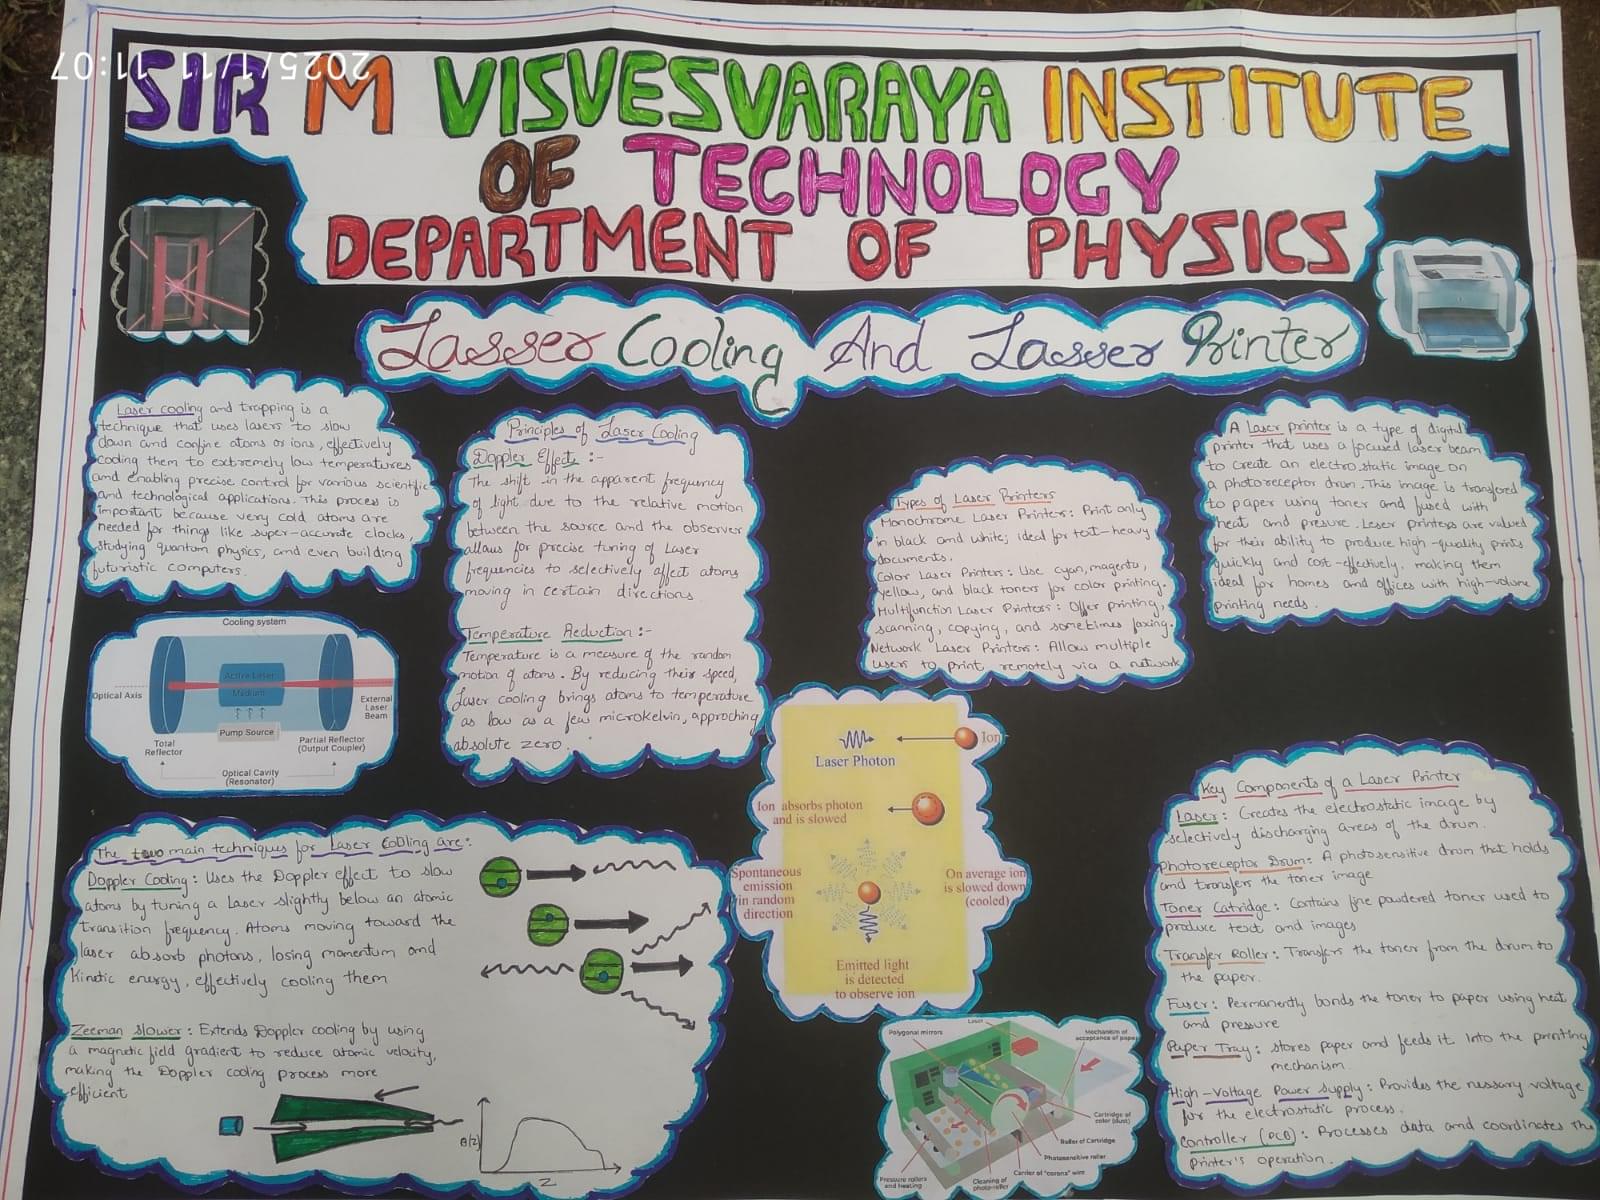 2025/1/11 11:07
SIR M VISVESVARAYA INSTITUTE
OF TECHNOLOGY
DEPARTMENT OF PHYSICS
Lasser Cooling And Lasser Printer
Laser cooling and trapping is a
technique that uses lasers to slow
down and confine atoms or ions, effectively
cooling them to extremely low temperatures
and enabling precise control for various scientific
and technological applications. This process is
important because very cold atoms are
needed for things like super-accurate clocks,
studying quantum physics, and even building
futuristic computers.
Cooling system
Active Laser
Medium
Optical Axis
External
Laser
Beam
Pump Source
Total
Reflector
Partial Reflector
(Output Coupler)
Optical Cavity
(Resonator)
Principles of Laser Cooling
Doppler Effect :-
The shift in the apparent frequency
of light due to the relative motion
between the source and the observer
allows for precise tuning of Laser
frequencies to selectively affect atoms
moving in certain directions
Temperature Reduction :-
Temperature is a measure of the random
motion of atoms. By reducing their speed,
Laser cooling brings atoms to temperature
as low as a few microkelvin, approching
absolute zero.
The two main techniques for Laser Cooling are:
Doppler Cooling : Uses the Doppler effect to slow
atoms by tuning a Laser slightly below an atomic
transition frequency. Atoms moving toward the
laser absorb photons, losing momentum and
Kinetic energy, effectively cooling them
Zeeman slower : Extends Doppler cooling by using
a magnetic field gradient to reduce atomic velocity,
making the Doppler cooling process more
efficient
B(z)
Z
Types of Laser Printers
Monochrome Laser Printers: Print only
in black and white; ideal for text-heavy
documents.
Color Laser Printers: Use cyan, magenta,
yellow, and black toners for color printing.
Multifunction Laser Printers: Offer printing,
scanning, copying, and sometimes faxing.
Network Laser Printers: Allow multiple
users to print remotely via a network
Laser Photon
Ion
Ion absorbs photon
and is slowed
Spontaneous
emission
in random
direction
On average ion
is slowed down
(cooled)
Emitted light
is detected
to observe ion
Polygonal mirrors
Laser
Mechanism of
acceptance of paper
Cartridge of
color (dust)
Roller of Cartridge
Photosensitive roller
Carrier of "corona" wire
Cleaning of
photo-roller
Pressure rollers
and heating
A Laser printer is a type of digital
printer that uses a focused laser beam
to create an electrostatic image on
a photoreceptor drum. This image is transfered
to paper using toner and fused with
heat and presure. Leser printers are valued
for their ability to produce high-quality prints
quickly and cost-effectively, making them
ideal for homes and offices with high-volume
printing needs.
Key Components of a Laser Printer
Laser : Creates the electrostatic image by
selectively discharging areas of the drum.
Photoreceptor Drum: A photosensitive drum that holds
and transfers the toner image
Toner Catridge : Contains fine powdered toner used to
produce text and images
Transfer Roller : Transfers the toner from the drum to
the paper.
Fuser : Permanently bonds the toner to paper using heat
and pressure
Paper Tray : stores paper and feeds it Into the printing
mechanism.
High-Voltage Power supply : Provides the nessary voltage
for the electrostatic process.
Controller (PCB) : Processes data and coordinates the
Printer's operation.